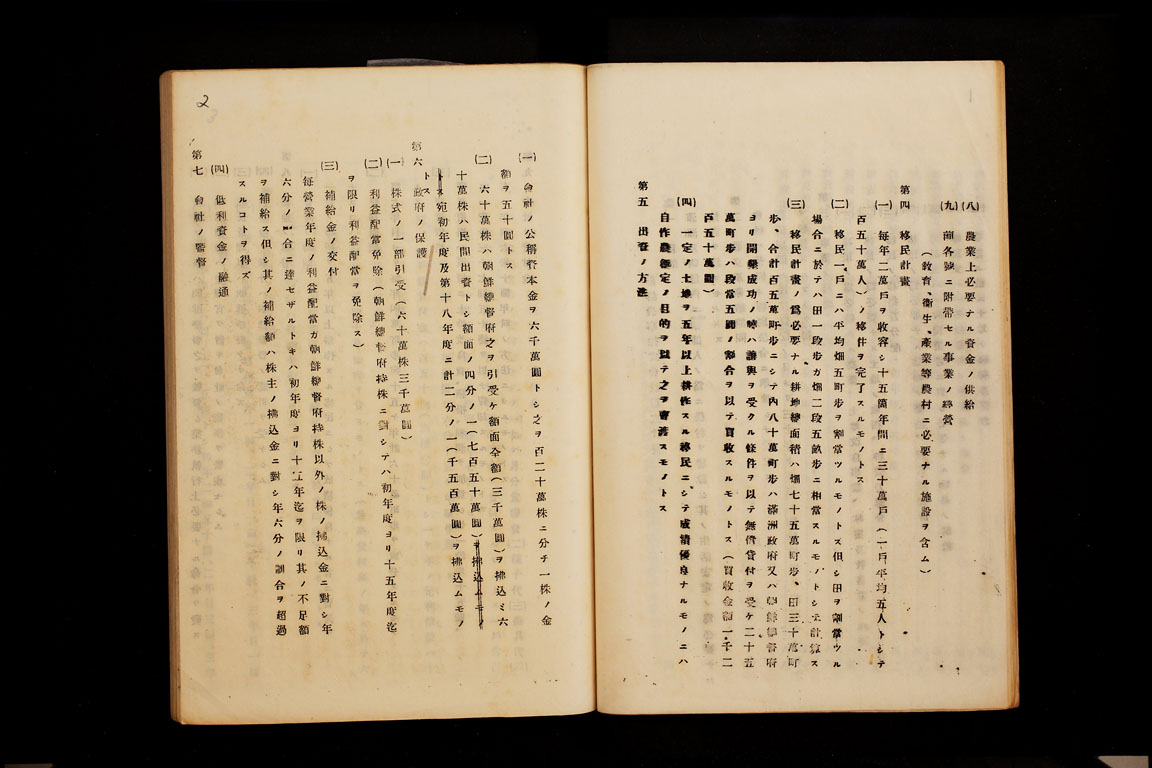 (八) 農業上必要ナル資金ノ供給
(九) 前各號ニ附帶セル事業ノ經營
(敎育、衞生、產業等農村ニ必要ナル施設ヲ含ム)
第四 移民計畫
(一) 每年二萬戶ヲ收容シ十五箇年間ニ三十萬戶(一戶平均五人トシテ
百五十萬人)ノ移住ヲ完了スルモノトス
(二) 移民一戶ニハ平均畑五町步ヲ割當ツルモノトス但シ田ヲ割當ツル
場合ニ於テハ田一段步ガ畑二段五畝步ニ相當スルモノトシテ計算ス
(三) 移民計畫ノ爲必要ナル耕地總面積ハ畑七十五萬町步、田三十萬町
步、合計百五萬町步ニシテ內八十萬町步ハ滿洲政府又ハ朝鮮總督府
ヨリ開墾成功ノ時ハ讓與ヲ受クル條件ヲ以テ無償貸付ヲ受ケ二十五
萬町步ハ段當五圓ノ割合ヲ以テ買收スルモノトス(買收金額一千二
百五十萬圓)
(四) 一定ノ土地ヲ五年以上耕作スル移民ニシテ成績優良ナルモノニハ
自作農創定ノ目的ヲ以テ之ヲ賣渡スモノトス
第五 出資ノ方法
2
(一) 會社ノ公稱資本金ヲ六千萬圓トシ之ヲ百二十萬株ニ分チ一株ノ金
額ヲ五十圓トス
(二) 六十萬株ハ朝鮮總督府之ヲ引受ケ額面全額(三千萬圓)ヲ拂込ミ六
十萬株ハ民間出資トシ額面ノ四分ノ一(七百五十萬圓)ヲ拂込ムモノ
トス宛初年度及第十八年度ニ計二分ノ一(千五百萬圓)ヲ拂込ムモノ
トス
第六 政府ノ保護
(一) 株式ノ一部引受(六十萬株三千萬圓)
(二) 利益配當免除(朝鮮總督府持株ニ對シテハ初年度ヨリ十五年度迄
ヲ限リ利益配當ヲ免除ス)
(三) 補給金ノ交付
每營業年度ノ利益配當カ朝鮮總督府持株以外ノ株ノ拂込金ニ對シ年
六分ノ割合ニ達セザルトキハ初年度ヨリ十五年迄ヲ限リ其ノ不足額
ヲ補給ス但シ其ノ補給額ハ株主ノ拂込金ニ對シ年六分ノ割合ヲ超過
スルコトヲ得ズ
(四) 低利資金ノ融通
第七 會社ノ監督